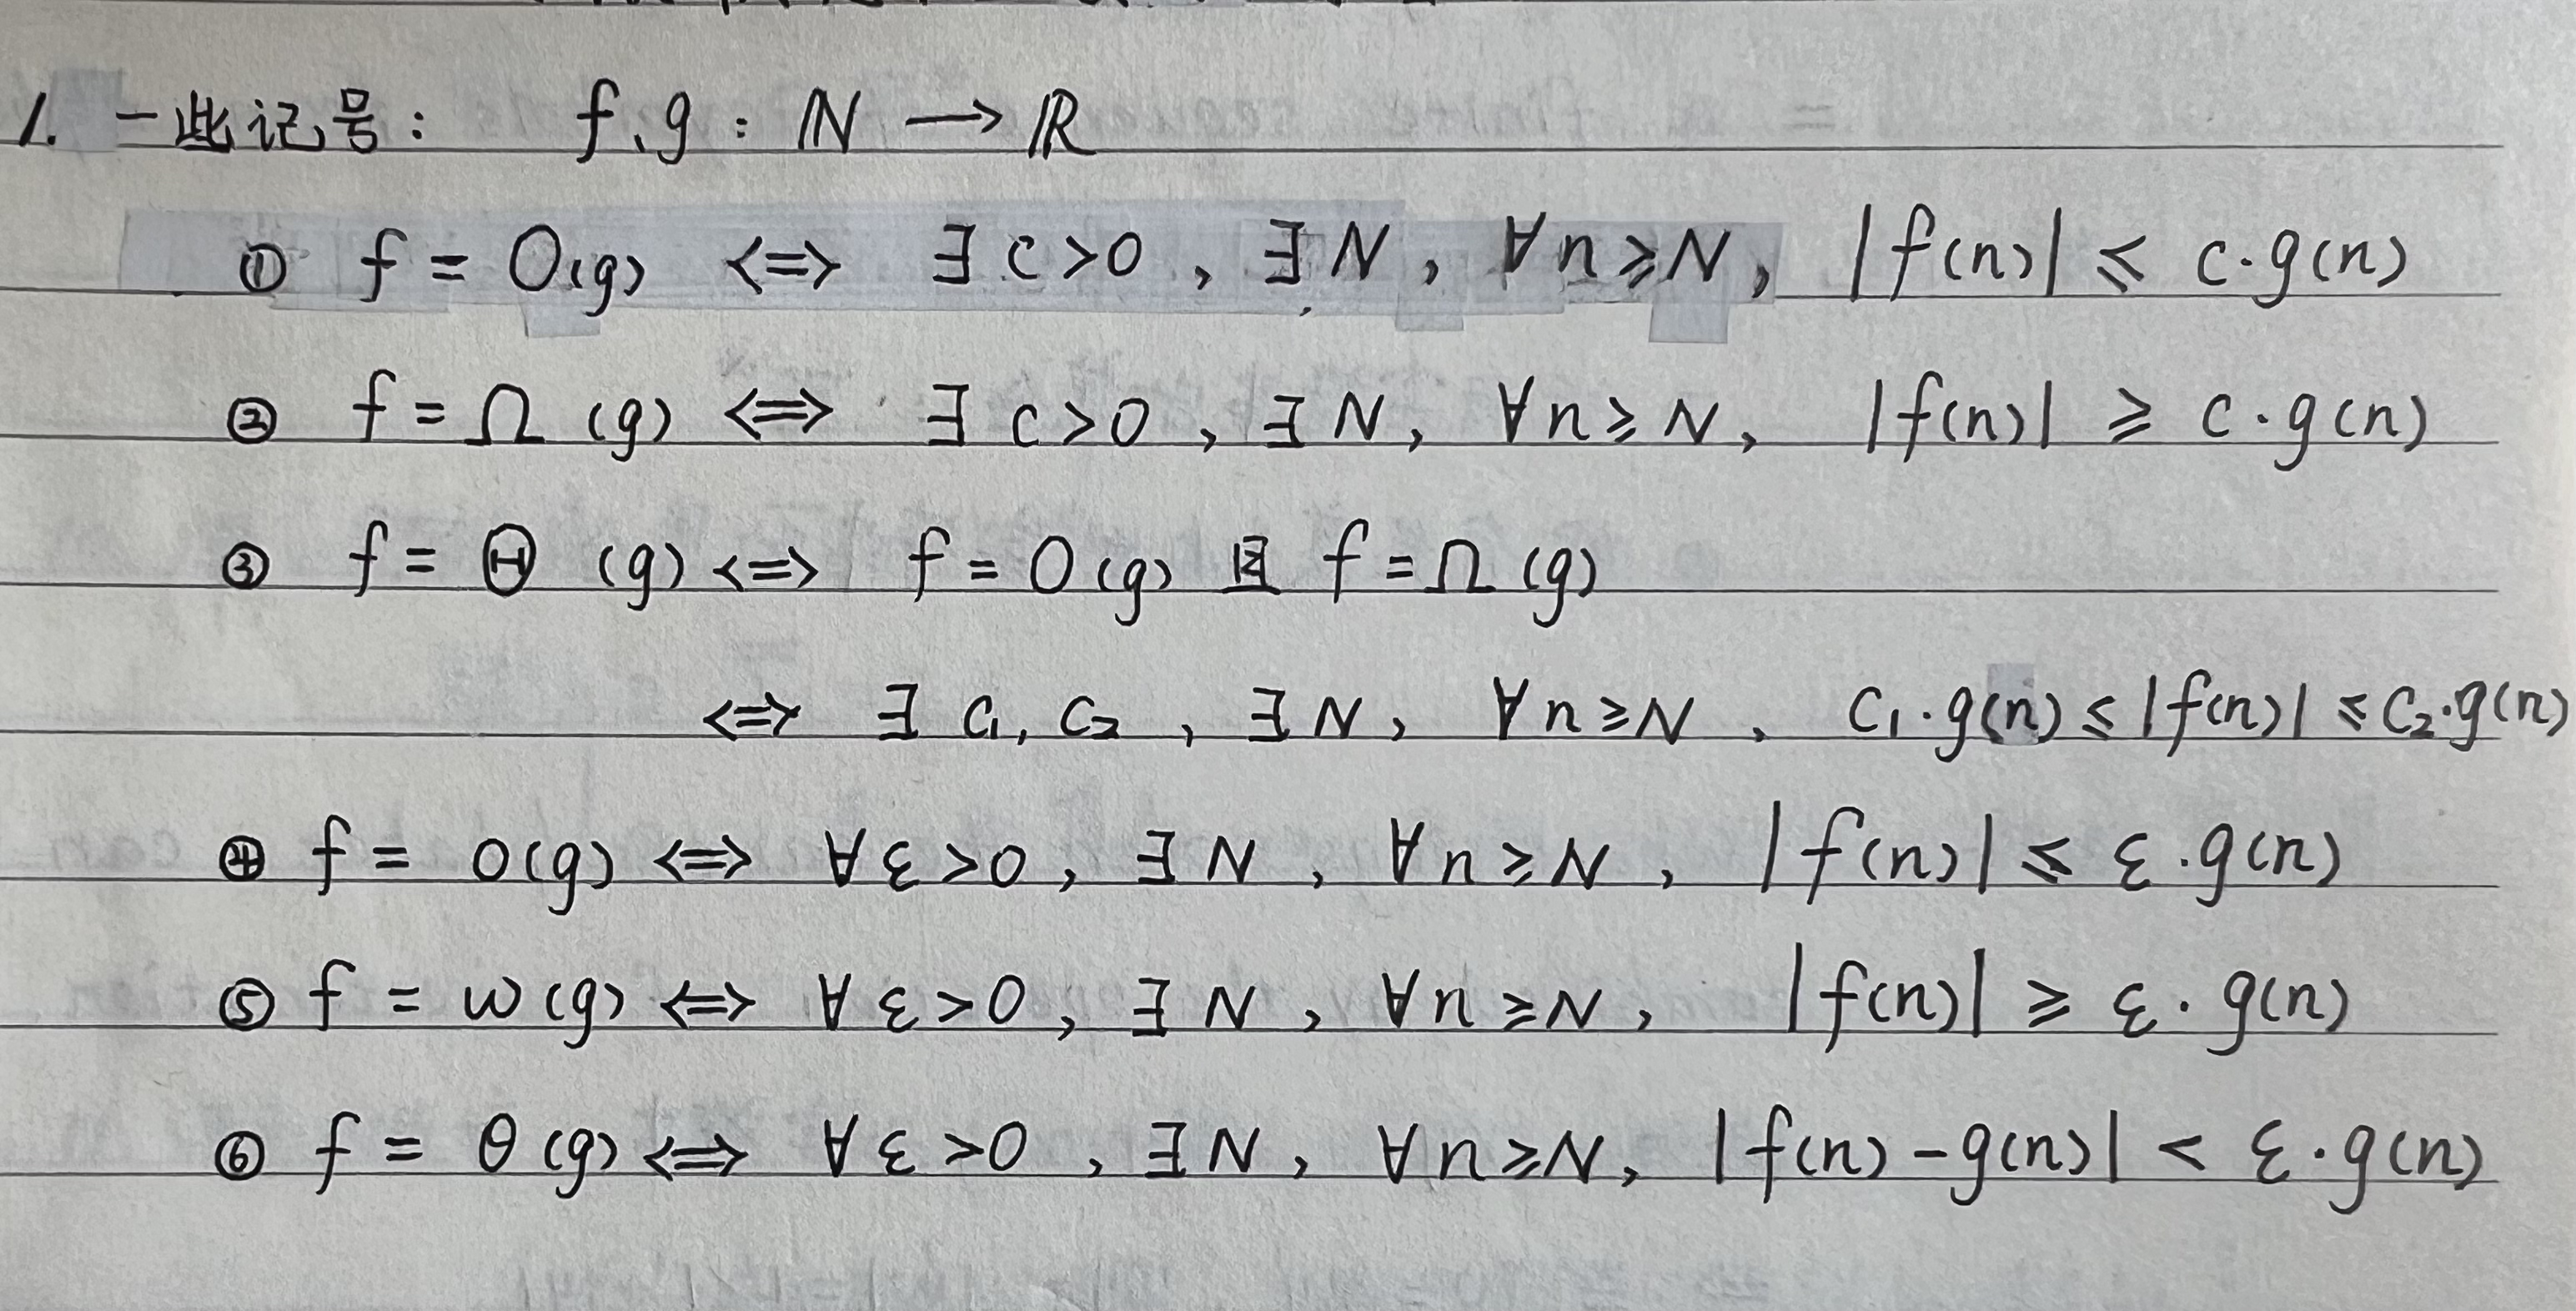 1. 一此记号： f、g : ℕ ⟶ ℝ
① f = O(g) ⟺ ∃ c>0 , ∃ N , ∀ n⩾N , |f(n)| ⩽ c·g(n)
② f = Ω (g) ⟺ ∃ c>0 , ∃ N , ∀ n⩾N , |f(n)| ⩾ c·g(n)
③ f = Θ (g) ⟺ f = O(g) 且 f = Ω (g)
⟺ ∃ c₁, c₂ , ∃ N , ∀ n⩾N , c₁·g(n) ⩽ |f(n)| ⩽ c₂·g(n)
④ f = o(g) ⟺ ∀ ε>0 , ∃ N , ∀ n⩾N , |f(n)| ⩽ ε·g(n)
⑤ f = ω(g) ⟺ ∀ ε>0 , ∃ N , ∀ n⩾N , |f(n)| ⩾ ε·g(n)
⑥ f = θ(g) ⟺ ∀ ε>0 , ∃ N , ∀ n⩾N , |f(n) − g(n)| < ε·g(n)